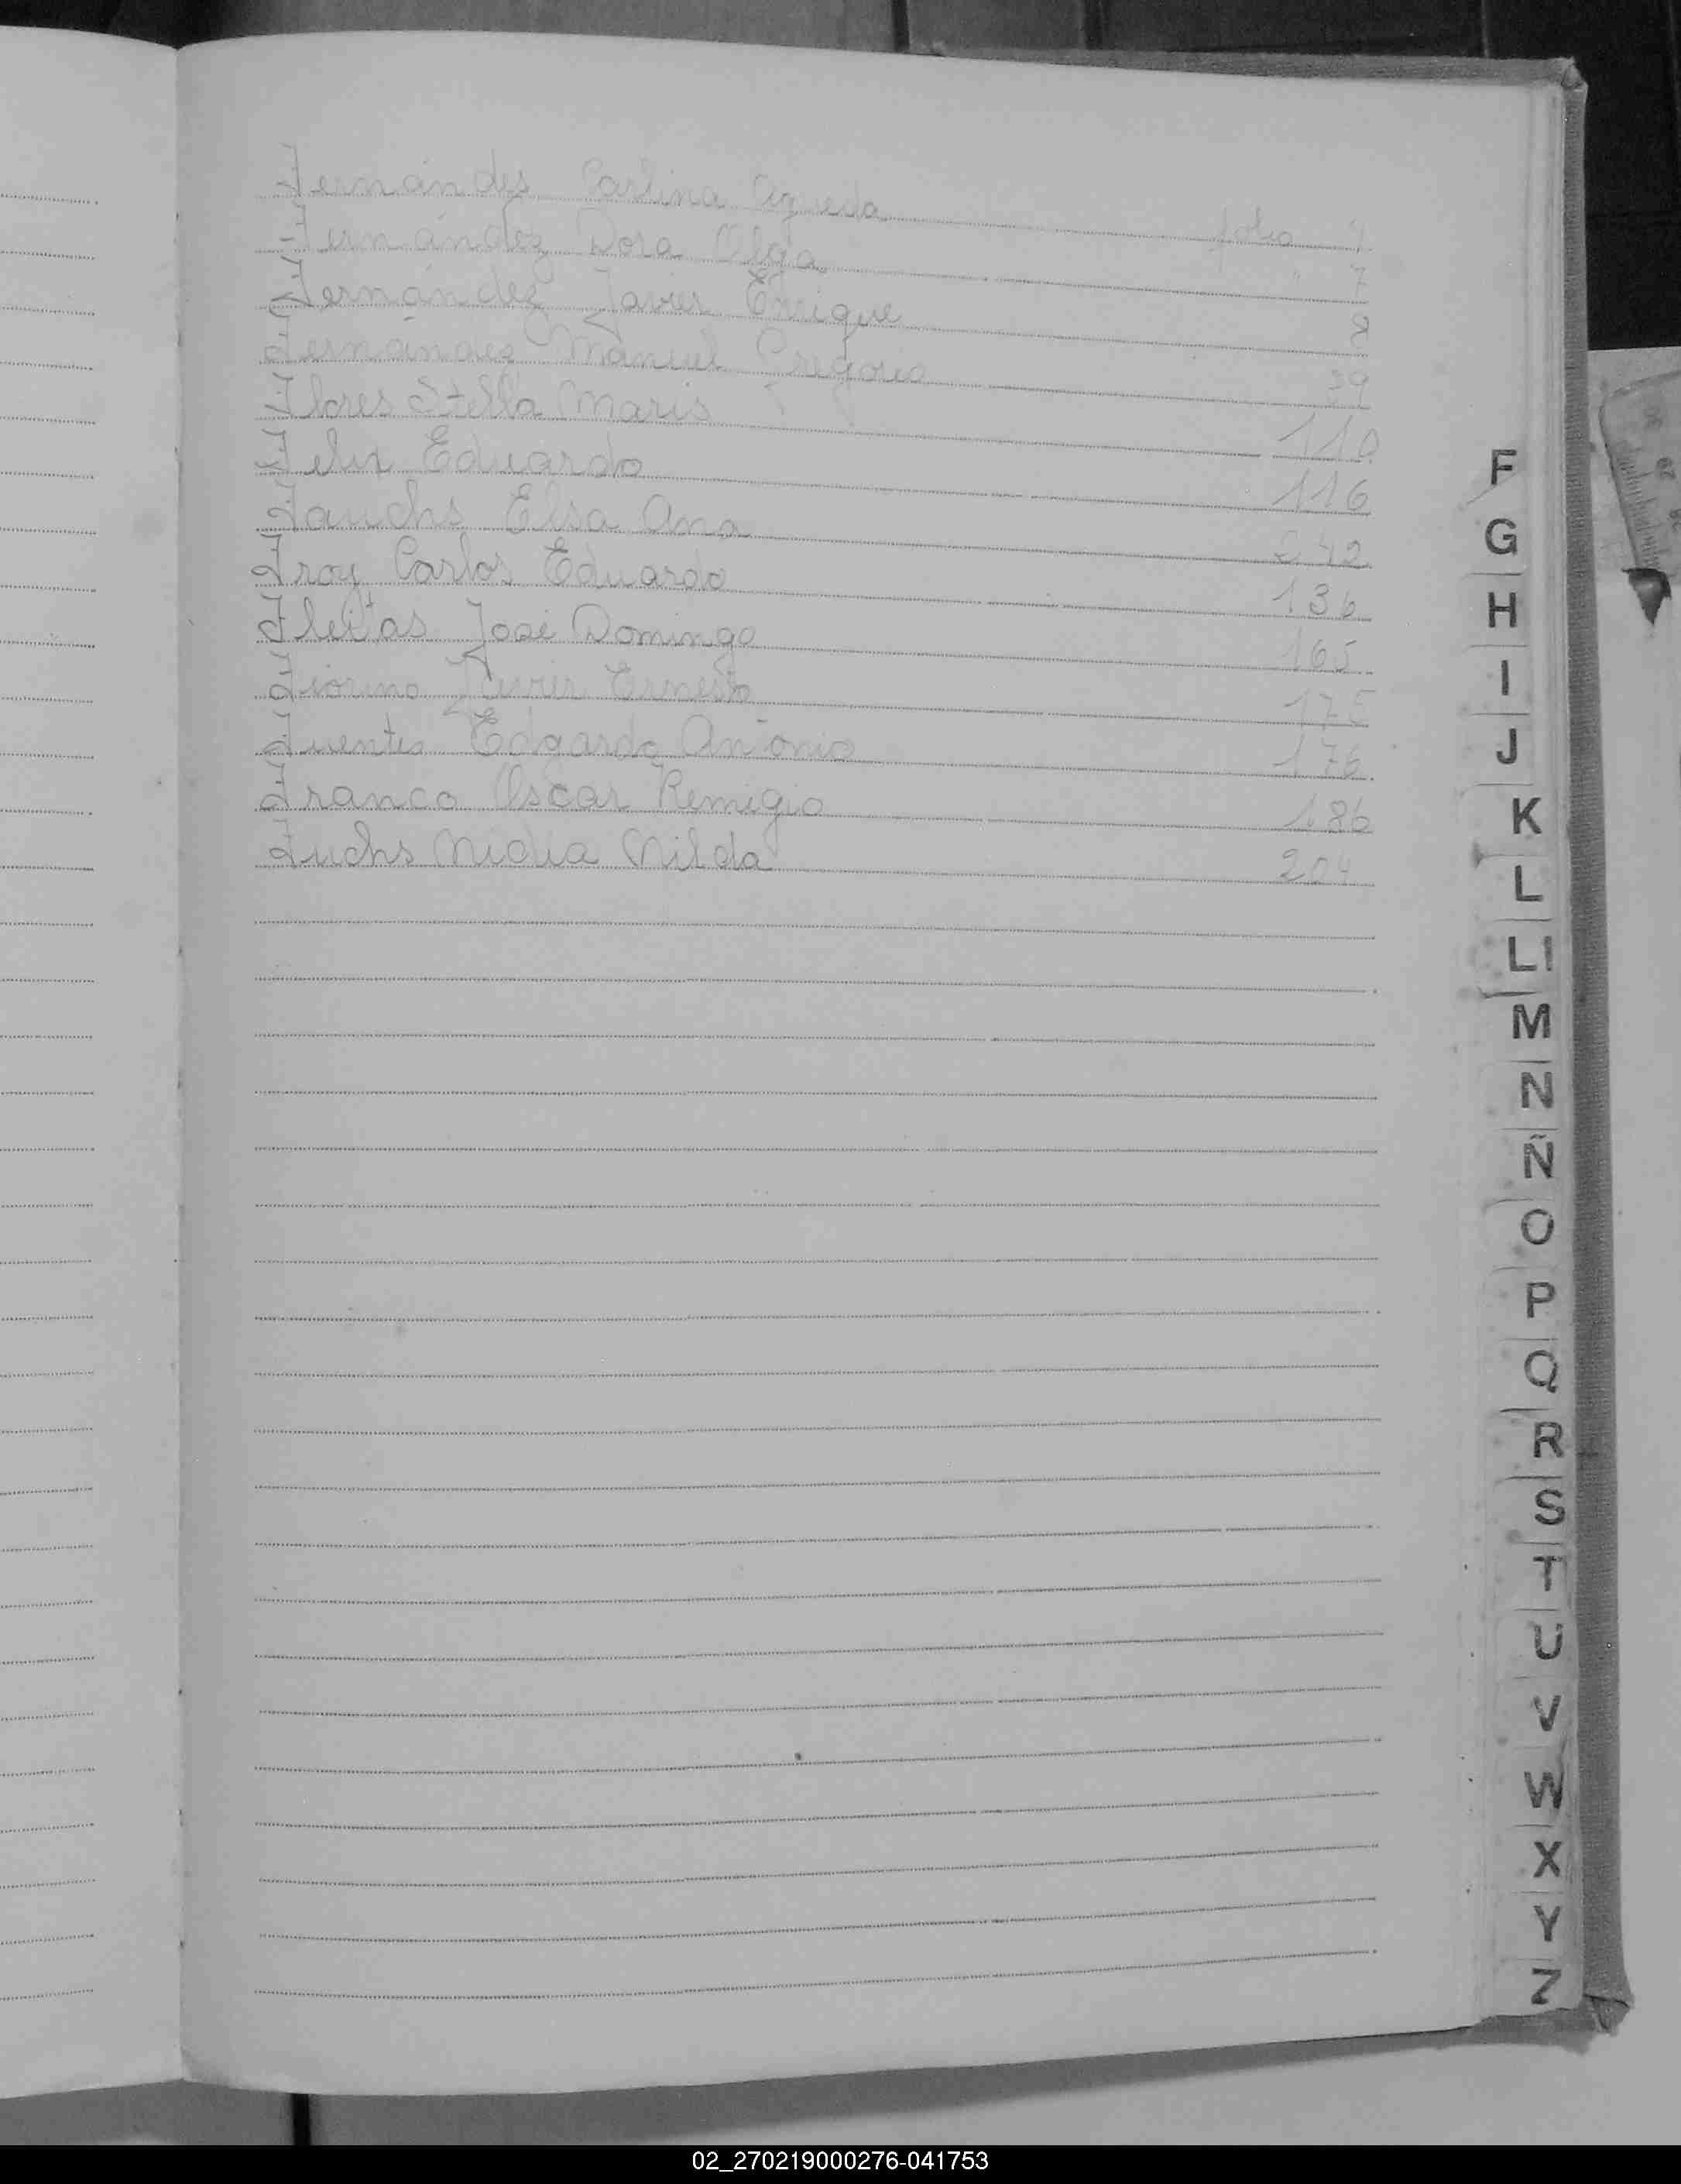 Fernández Carlina Agueda folio 4
Fernández Dora Olga " 7
Fernández Javier Enrique 8
Fernández Manuel Gregorio 39
Flores Stella Maris 110
Felix Eduardo 116
Fauchs Elsa Ana 242
Froy Carlos Eduardo 136
Fleitas José Domingo 165
Fiorino Javier Ernesto 175
Fuentes Edgardo Antonio 176
Franco Oscar Remigio 186
Fuchs Nidia Nilda 204
F
G
H
I
J
K
L
Ll
M
N
Ñ
O
P
Q
R
S
T
U
V
W
X
Y
Z
02_270219000276-041753